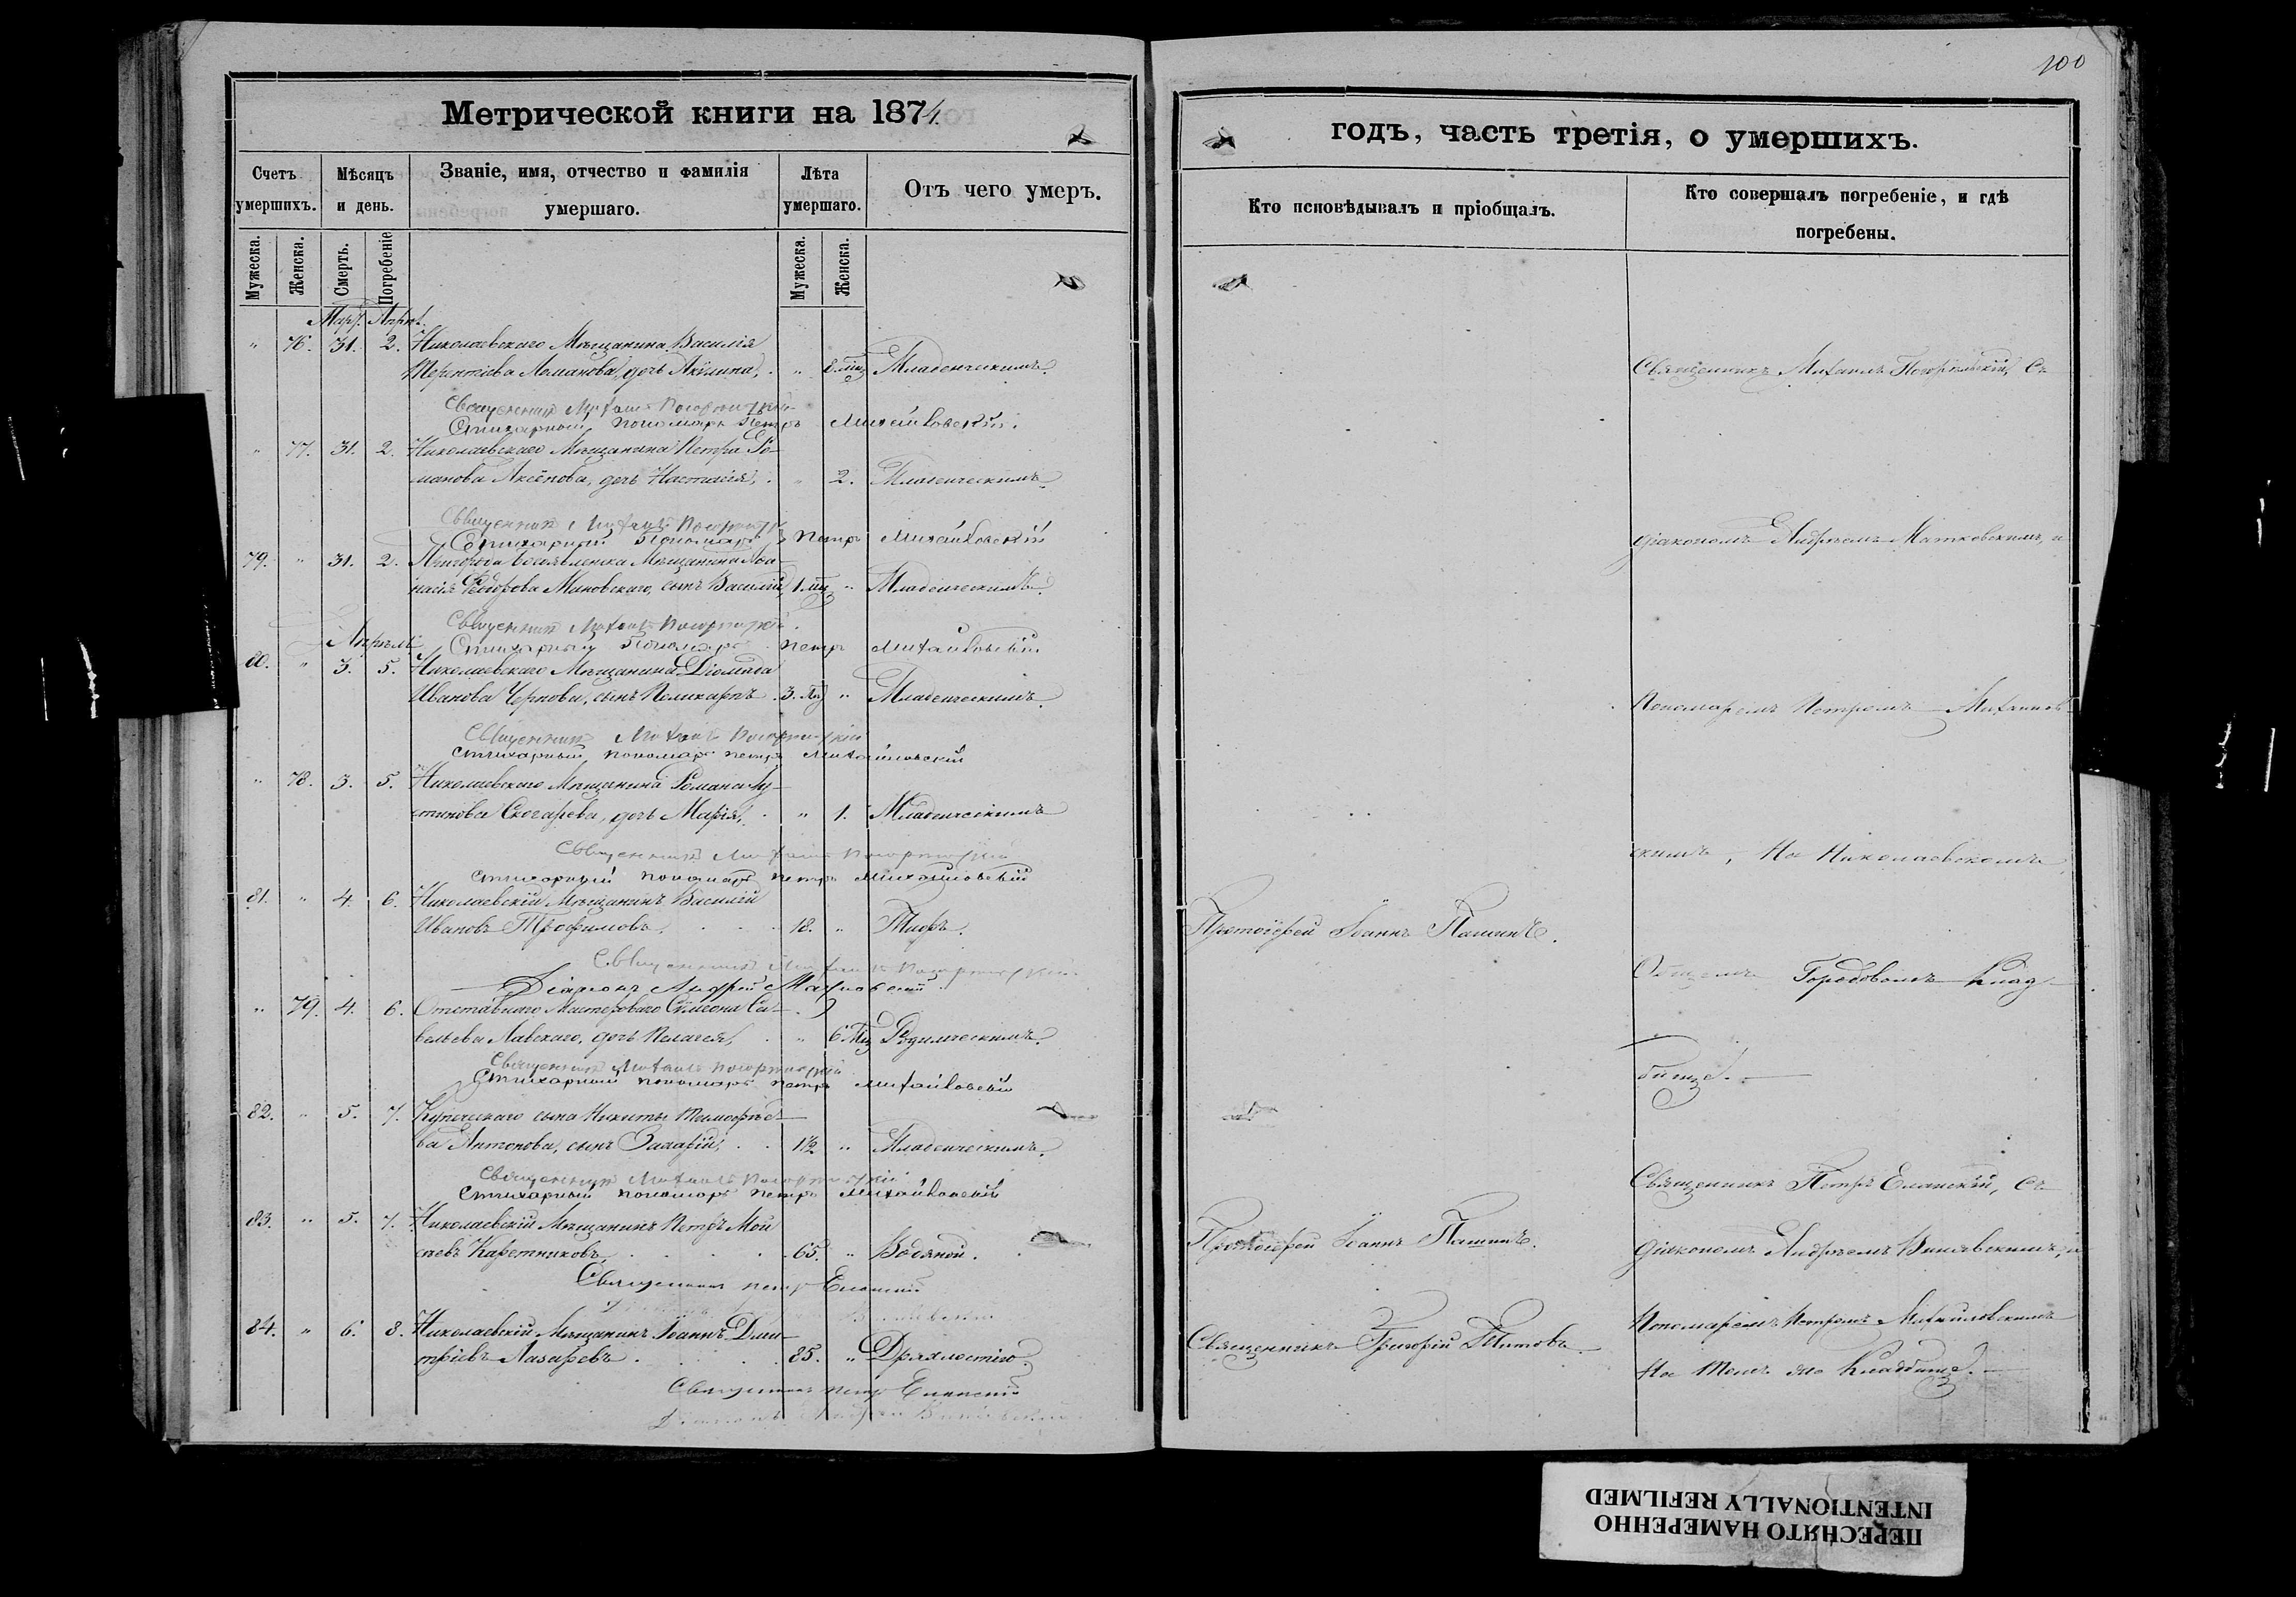 100
Метрической книги на 1874
Счетъ умершихъ.
Мѣсяцъ и день.
Званіе, имя, отчество и фамилія умершаго.
Лѣта умершаго.
Отъ чего умеръ.
Мужеска.
Женска.
Смерть.
Погребеніе
Мужеска.
Женска.
Март. Апрѣл.
" 76. 31. 2. Николаевскаго Мѣщанина Василія
Терентіева Ломанова, дочь Акилина, " 8 мѣц Младенческимъ.
Священникъ Михаилъ
Стихарный пономарь Петръ Михайловскій.
" 77. 31. 2. Николаевскаго Мѣщанина Петра Ро-
манова Аксёнова, дочь Настасія, " 2. Младенческимъ.
Священникъ Михаилъ
Стихарный Пономарь Петръ Михайловскій
79. " 31. 2. Мѣщанина Аѳа-
насія Ѳедорова Мановскаго, сынъ Василій, 1 мц " Младенческимъ.
Священникъ Михаилъ
Апрѣль
Стихарный Пономарь Петръ Михайловскій
80. " 3. 5. Николаевскаго Мѣщанина Діомида
Иванова Чернова, сынъ Поликарпъ 3. " Младенческимъ.
Священникъ Михаилъ
Стихарный пономарь Петръ Михайловскій
" 78. 3. 5. Николаевскаго Мѣщанина Романа Лу-
дочь Марія, " 1. Младенческимъ
Священникъ Михаилъ
Стихарный пономарь Петръ Михайловскій
81. " 4. 6. Николаевскій Мѣщанинъ Василій
Ивановъ Трофимовъ. 18. " Тифъ.
Священникъ Михаилъ
Діаконъ Андрей
" 79. 4. 6. Отставнаго Мастероваго Сѵмеона Са-
вельева Лавскаго, дочь Пелагея, " 6 Мц Родимческимъ.
Священникъ Михаилъ
Стихарный пономарь Петръ Михайловскій
82. " 5. 7. Купеческаго сына Никиты Тимофѣе-
ва Антонова, сынъ Захарій, 1½ " Младенческимъ.
Священникъ Михаилъ
Стихарный пономарь Петръ Михайловскій
83. " 5. 7. Николаевскій Мѣщанинъ Петръ Мои-
сѣевъ Каретниковъ 65. " Водяной.
Священникъ Петръ Еланскій
84. " 6. 8. Николаевскій Мѣщанинъ Іоаннъ Дми-
тріевъ Лазаревъ. 85. " Дряхлостію.
Священникъ Петръ Еланскій
годъ, часть третія, о умершихъ.
Кто исповѣдывалъ и пріобщалъ.
Кто совершалъ погребеніе, и гдѣ погребены.
Священникъ Михаилъ Съ
діакономъ Андреемъ Матковскимъ, и
Пономаремъ Петромъ Михайлов-
скимъ, На Николаевскомъ
Протоіерей Іоаннъ Пашинъ.
Общемъ Городовомъ Клад-
бищѣ.
Священникъ Петръ Еланскій, съ
Протоіерей Іоаннъ Пашинъ.
діакономъ Андреемъ и
Пономаремъ Петромъ Михайловскимъ
Священникъ Григорій Титовъ.
На томъ же кладбищѣ.
ПЕРЕСНЯТО НАМЕРЕННО
INTENTIONALLY REFILMED